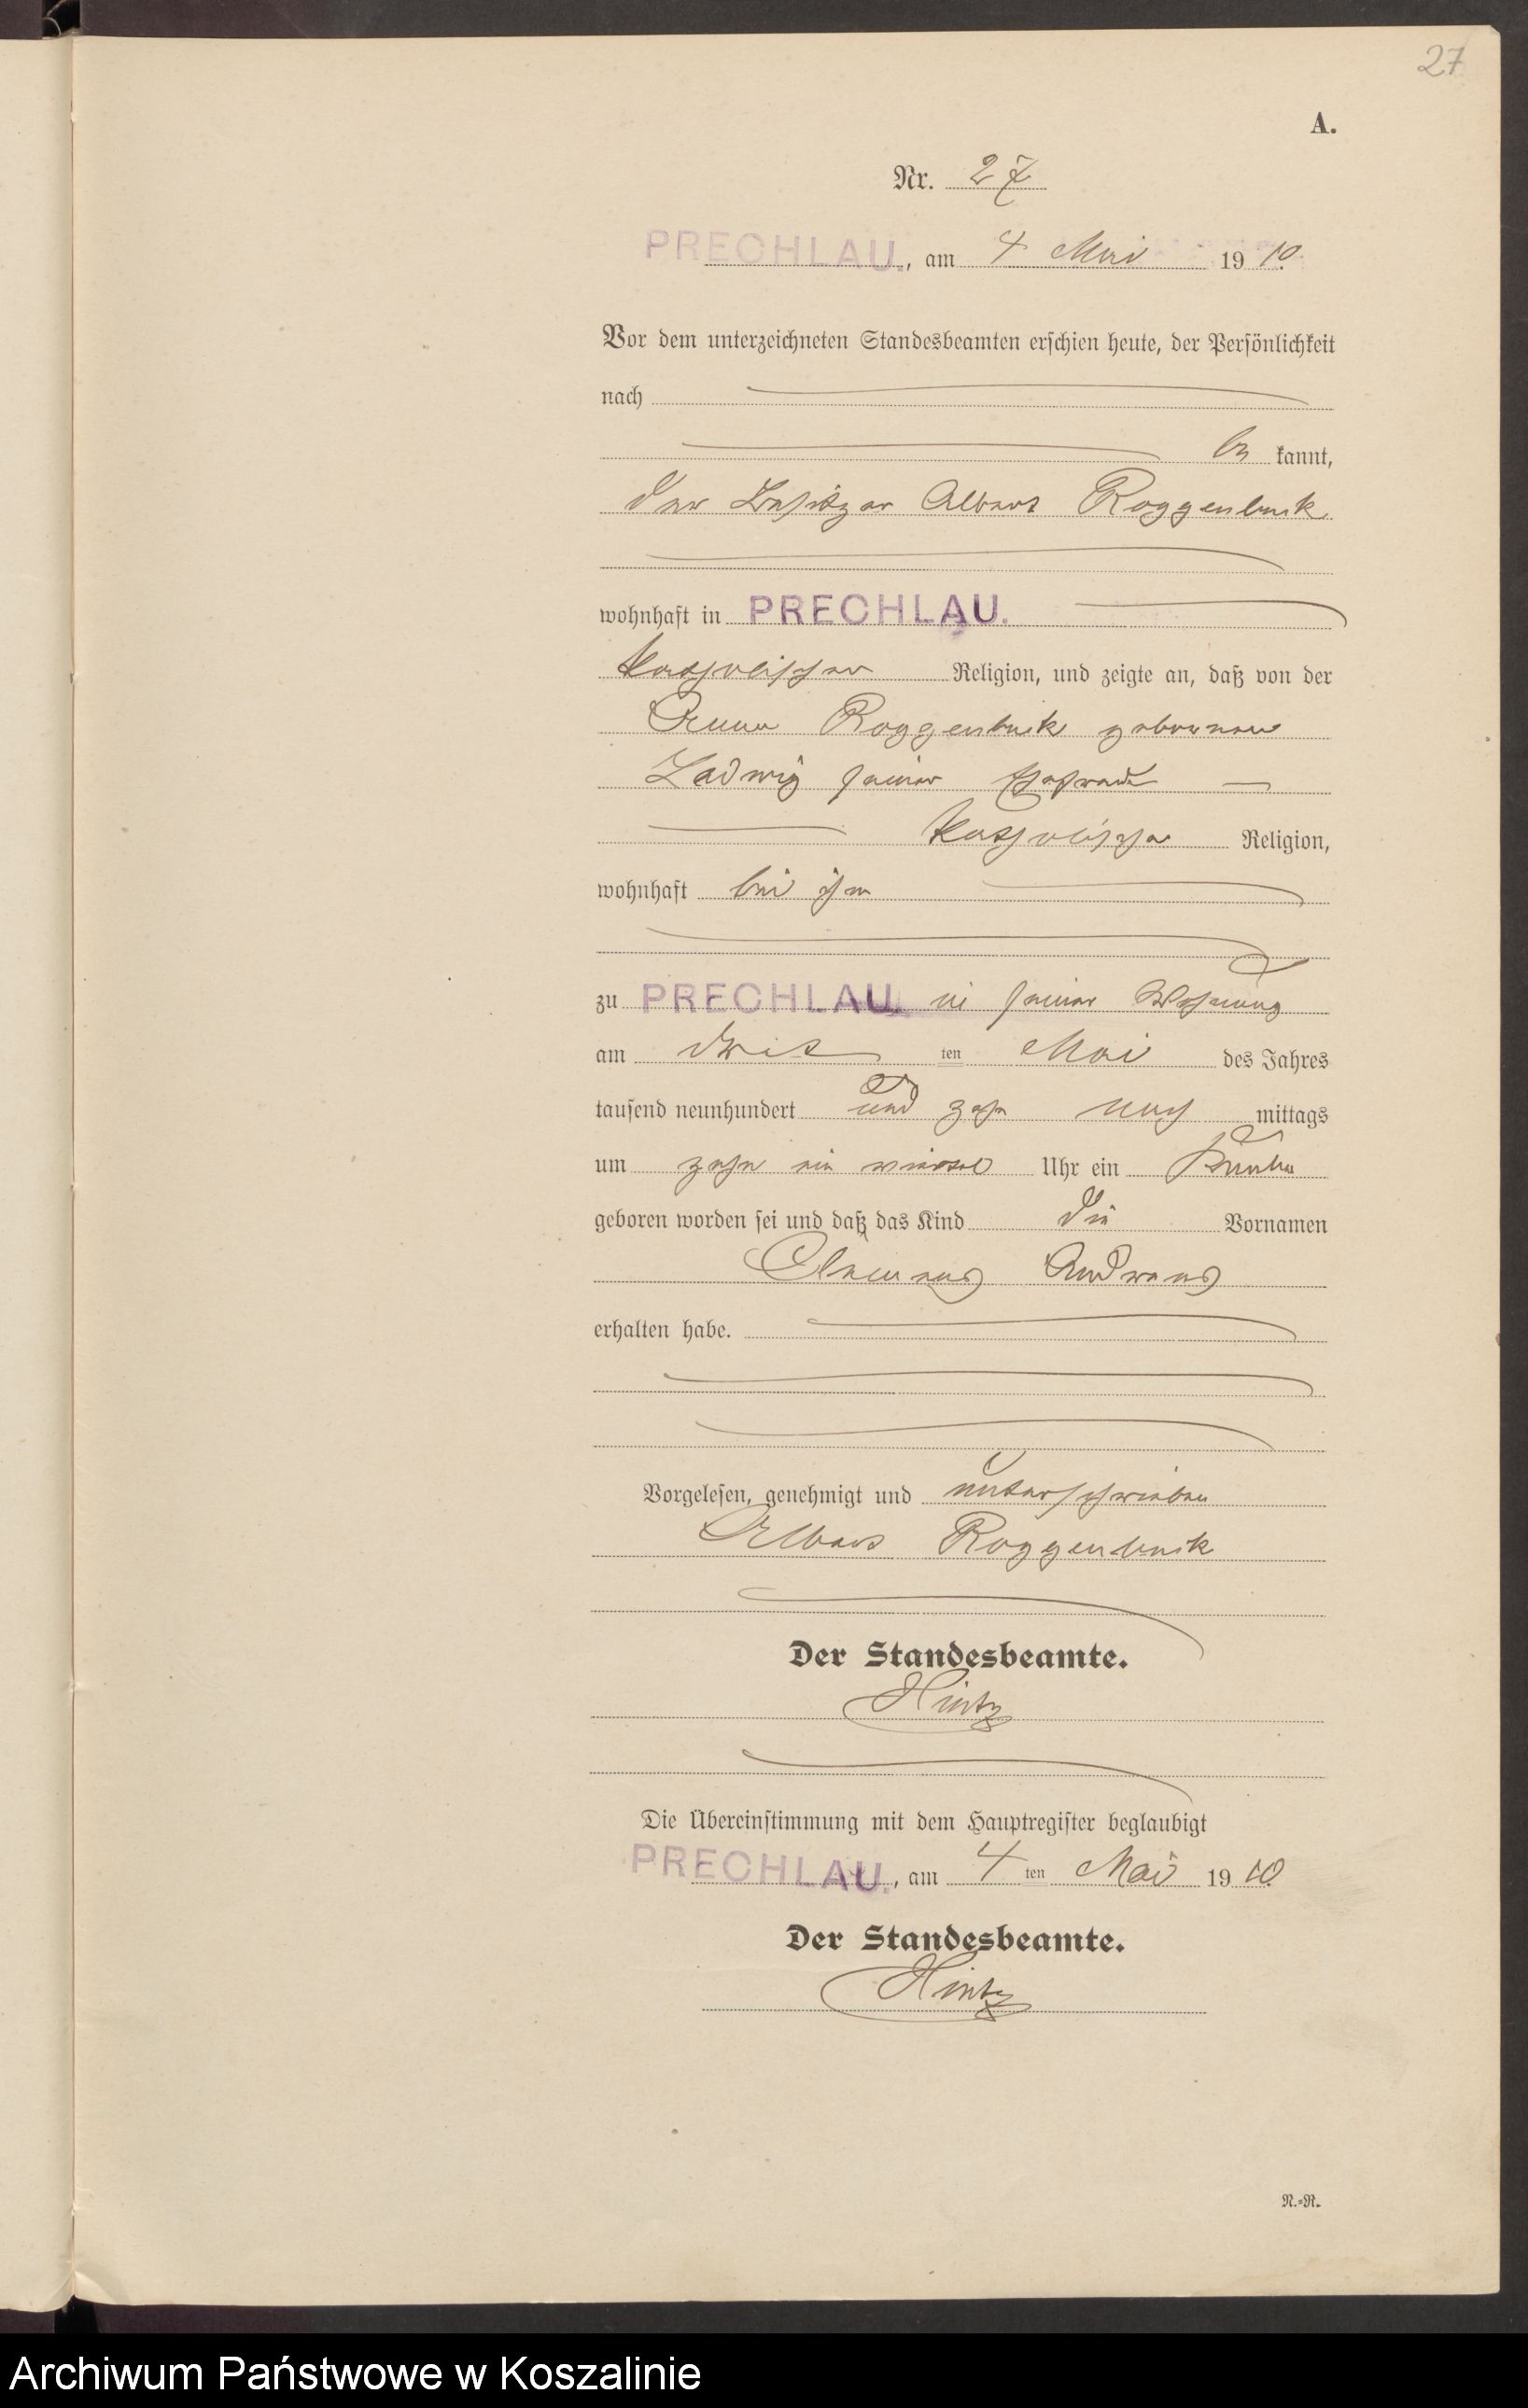 27
A.
Nr. 27
PRECHLAU., am 4 Mai 1910.
Vor dem unterzeichneten Standesbeamten erschien heute, der Persönlichkeit
nach
be kannt,
der Besitzer Albert Roggenbuck
wohnhaft in PRECHLAU.
katholischer Religion, und zeigte an, daß von der
Anna Roggenbuck geborenen
Ladwig seiner Ehefrau
katholischer Religion,
wohnhaft bei ihm
zu PRECHLAU. in seiner Wohnung
am drit ten Mai des Jahres
tausend neunhundert und zehn nach mittags
um zehn ein viertel Uhr ein Knabe
geboren worden sei und daß das Kind die Vornamen
Clemens Andreas
erhalten habe.
Vorgelesen, genehmigt und unterschrieben
Albert Roggenbuck
Der Standesbeamte.
Hintz
Die Übereinstimmung mit dem Hauptregister beglaubigt
PRECHLAU., am 4 ten Mai 1910.
Der Standesbeamte.
Hintz
N.=R.
Archiwum Państwowe w Koszalinie